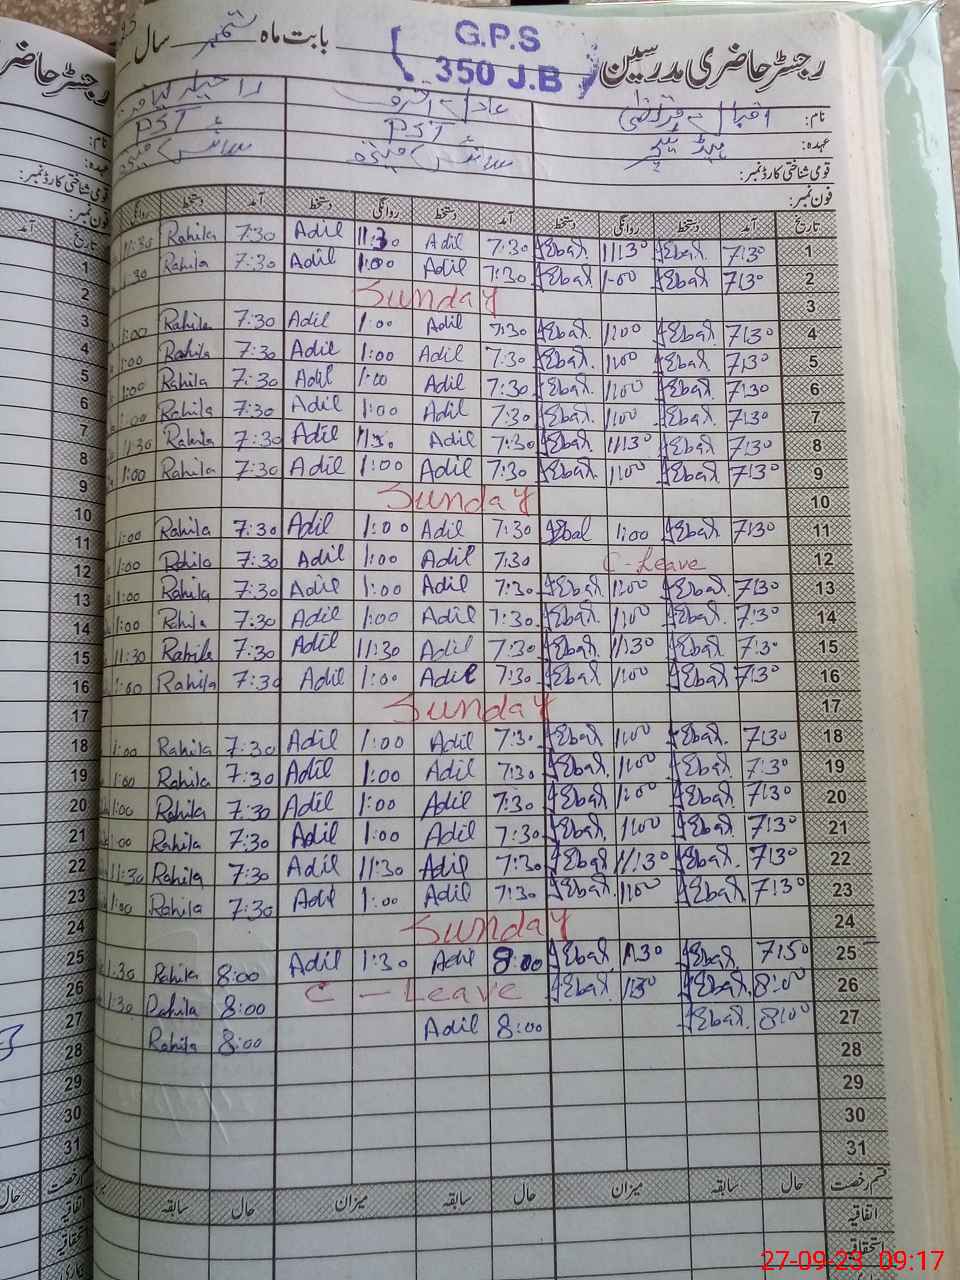 رجسٹر حاضری مدرسین G.P.S بابت ماہ ستمبر سال
350 J.B
نام: اقبال
عہدہ: ہیڈ ٹیچر PST PST
قومی شناختی کارڈ نمبر:
فون نمبر:
تاریخ آمد دستخط روانگی دستخط آمد دستخط روانگی دستخط آمد دستخط روانگی
1 7:30 Iqbal 11:30 Iqbal 7:30 Adil 11:30 Adil 7:30 Rahila 11:30
2 7:30 Iqbal 1:00 Iqbal 7:30 Adil 1:00 Adil 7:30 Rahila 1:30
3 Sunday
4 7:30 Iqbal 1:00 Iqbal 7:30 Adil 1:00 Adil 7:30 Rahila 1:00
5 7:30 Iqbal 1:00 Iqbal 7:30 Adil 1:00 Adil 7:30 Rahila 1:00
6 7:30 Iqbal 1:00 Iqbal 7:30 Adil 1:00 Adil 7:30 Rahila 1:00
7 7:30 Iqbal 1:00 Iqbal 7:30 Adil 1:00 Adil 7:30 Rahila 1:00
8 7:30 Iqbal 11:30 Iqbal 7:30 Adil 11:30 Adil 7:30 Rahila 11:30
9 7:30 Iqbal 1:00 Iqbal 7:30 Adil 1:00 Adil 7:30 Rahila 1:00
10 Sunday
11 7:30 Iqbal 1:00 Iqbal 7:30 Adil 1:00 Adil 7:30 Rahila 1:00
12 C-Leave 7:30 Adil 1:00 Adil 7:30 Rahila 1:00
13 7:30 Iqbal 1:00 Iqbal 7:30 Adil 1:00 Adil 7:30 Rahila 1:00
14 7:30 Iqbal 1:00 Iqbal 7:30 Adil 1:00 Adil 7:30 Rahila 1:00
15 7:30 Iqbal 11:30 Iqbal 7:30 Adil 11:30 Adil 7:30 Rahila 11:30
16 7:30 Iqbal 1:00 Iqbal 7:30 Adil 1:00 Adil 7:30 Rahila 1:00
17 Sunday
18 7:30 Iqbal 1:00 Iqbal 7:30 Adil 1:00 Adil 7:30 Rahila 1:00
19 7:30 Iqbal 1:00 Iqbal 7:30 Adil 1:00 Adil 7:30 Rahila 1:00
20 7:30 Iqbal 1:00 Iqbal 7:30 Adil 1:00 Adil 7:30 Rahila 1:00
21 7:30 Iqbal 1:00 Iqbal 7:30 Adil 1:00 Adil 7:30 Rahila 1:00
22 7:30 Iqbal 11:30 Iqbal 7:30 Adil 11:30 Adil 7:30 Rahila 11:30
23 7:30 Iqbal 1:00 Iqbal 7:30 Adil 1:00 Adil 7:30 Rahila 1:00
24 Sunday
25 Iqbal 1:30 Iqbal 8:00 Adil 1:30 Adil 8:00 Rahila 1:30
26 8:00 Iqbal 1:30 Iqbal C - Leave 8:00 Rahila 1:30
27 8:00 Iqbal 8:00 Adil 8:00 Rahila
28
29
30
31
قسم رخصت حال سابقہ میزان حال سابقہ میزان حال سابقہ
اتفاقیہ
استحقاقیہ
27-09-23 09:17